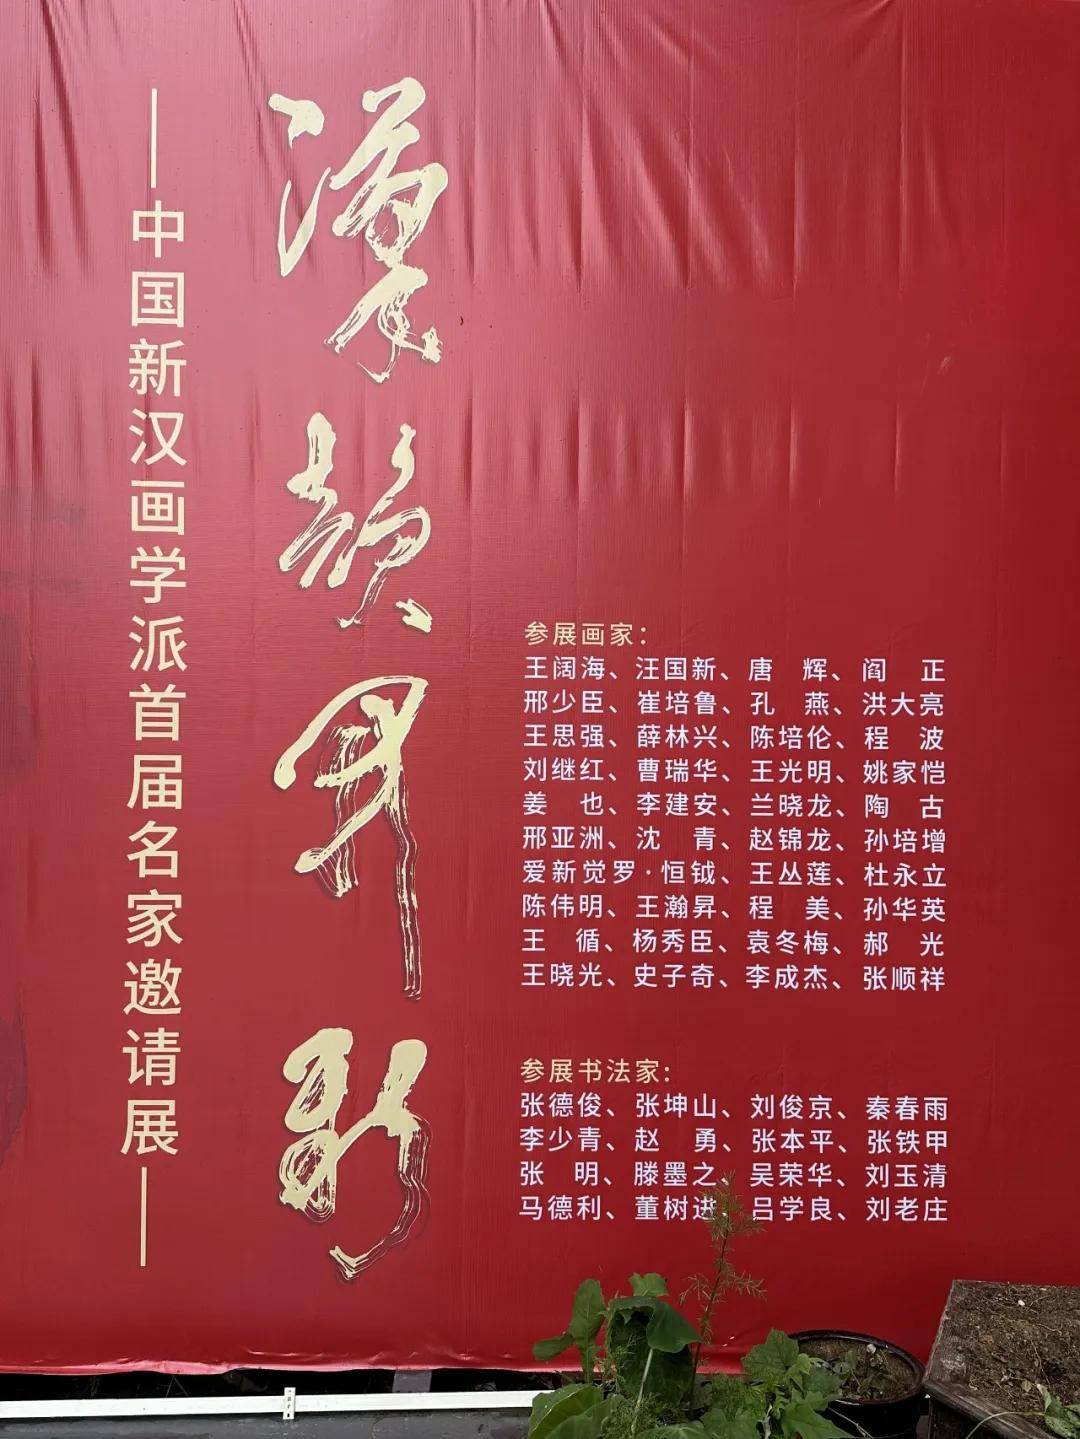 漢韻
——中国新汉画学派首届名家邀请展——
参展画家：
王阔海、汪国新、唐　辉、阎　正
邢少臣、崔培鲁、孔　燕、洪大亮
王思强、薛林兴、陈培伦、程　波
刘继红、曹瑞华、王光明、姚家恺
姜　也、李建安、兰晓龙、陶　古
邢亚洲、沈　青、赵锦龙、孙培增
爱新觉罗·恒钺、王丛莲、杜永立
陈伟明、王瀚昇、程　美、孙华英
王　循、杨秀臣、袁冬梅、郝　光
王晓光、史子奇、李成杰、张顺祥
参展书法家:
张德俊、张坤山、刘俊京、秦春雨
李少青、赵　勇、张本平、张铁甲
张　明、滕墨之、吴荣华、刘玉清
马德利、董树进、吕学良、刘老庄